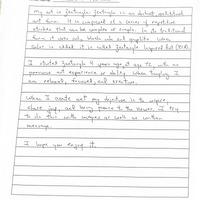 My art is Zentangle. Zentangle is an abstract, meditated
art form. It is composed of a series of repetitive
strokes that can be complex or simple. In its traditional
form, it uses only black ink and graphite. When
color is added it is called Zentangle Inspired Art (ZIA).
I started Zentangle 4 years ago at age 72, with no
previous art experience or ability. When tangling I
am relaxed, focused, and creative.
When I create art my objective is to inspire,
share joy, and bring peace to the viewer. I try
to do this with images as well as written
message.
I hope you enjoy it.